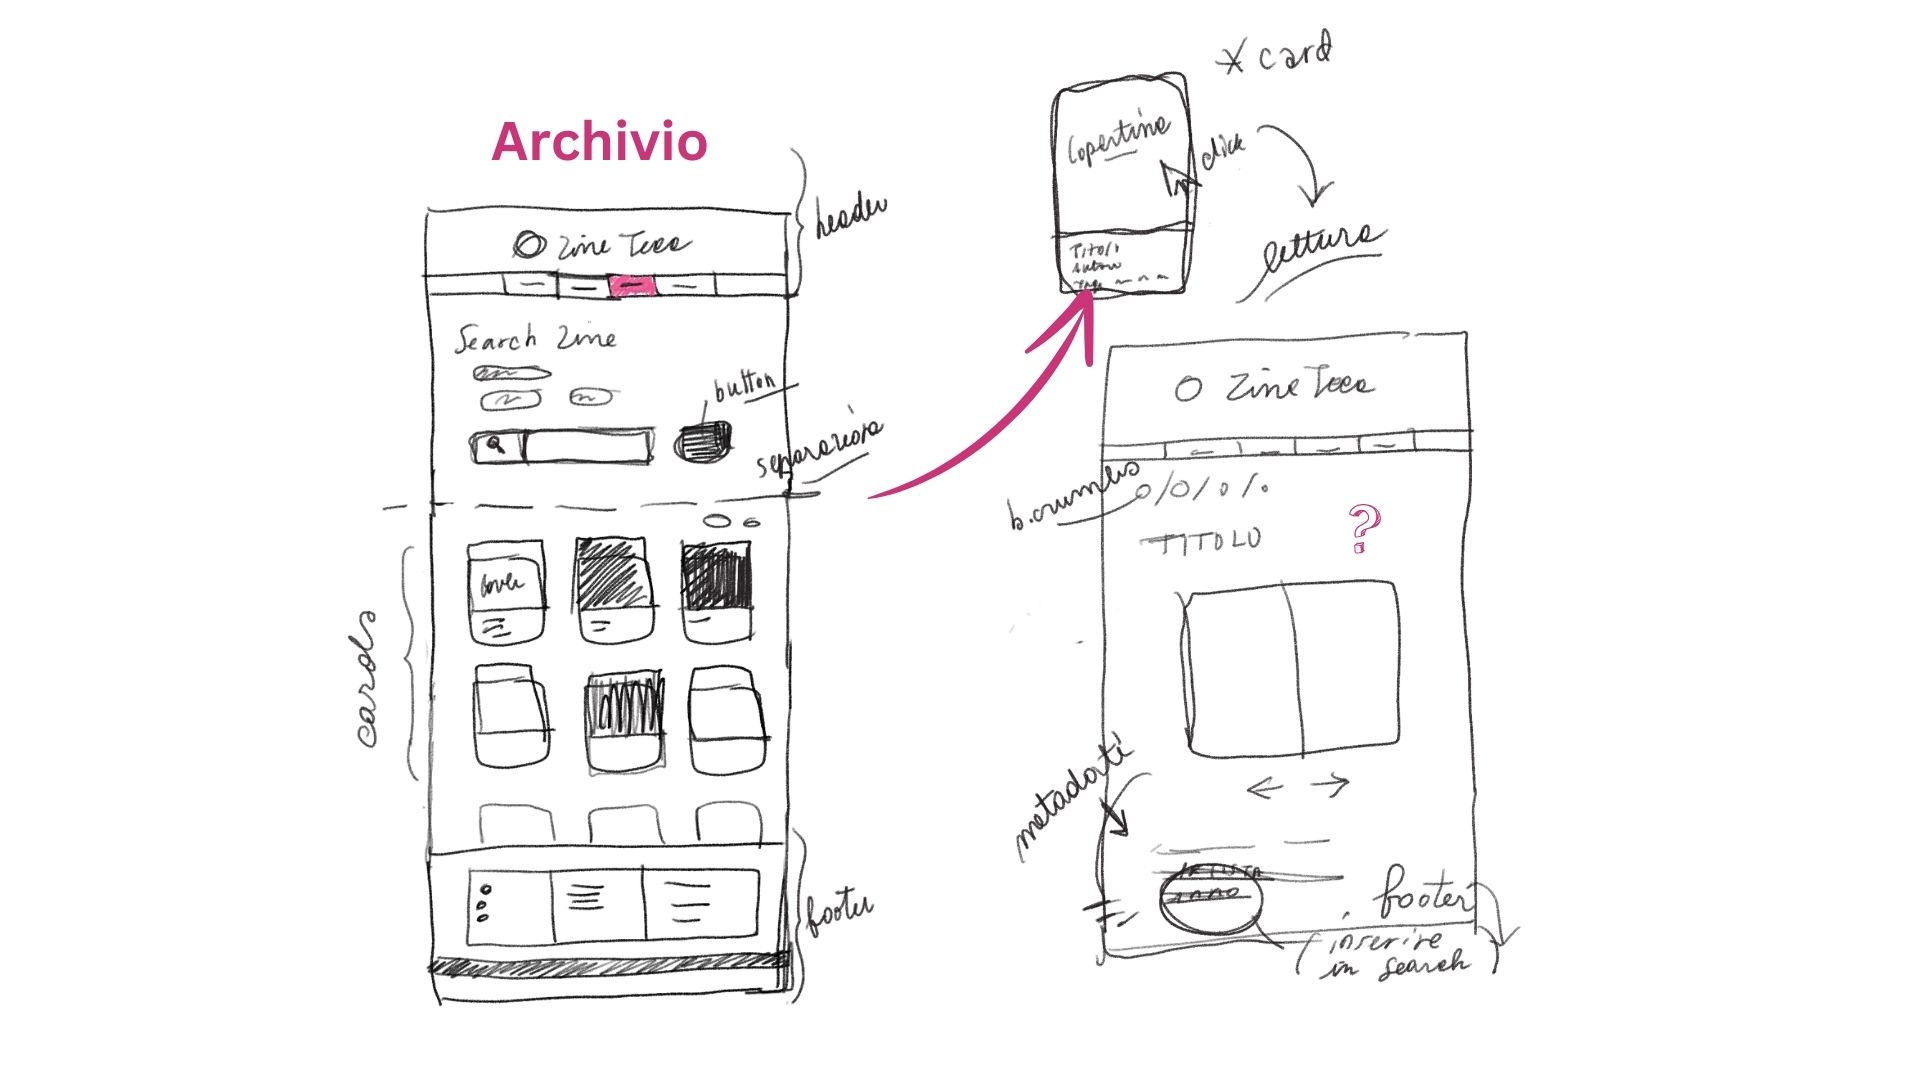 Archivio
header
Zine Teca
Search Zine
button
separazione
cards
cover
footer
* card
Copertina
click
Titolo
Autore
lettura
Zine Teca
b.crumbs
TITOLO
?
metadati
ARTISTA
ANNO
footer
(inserire
in search)